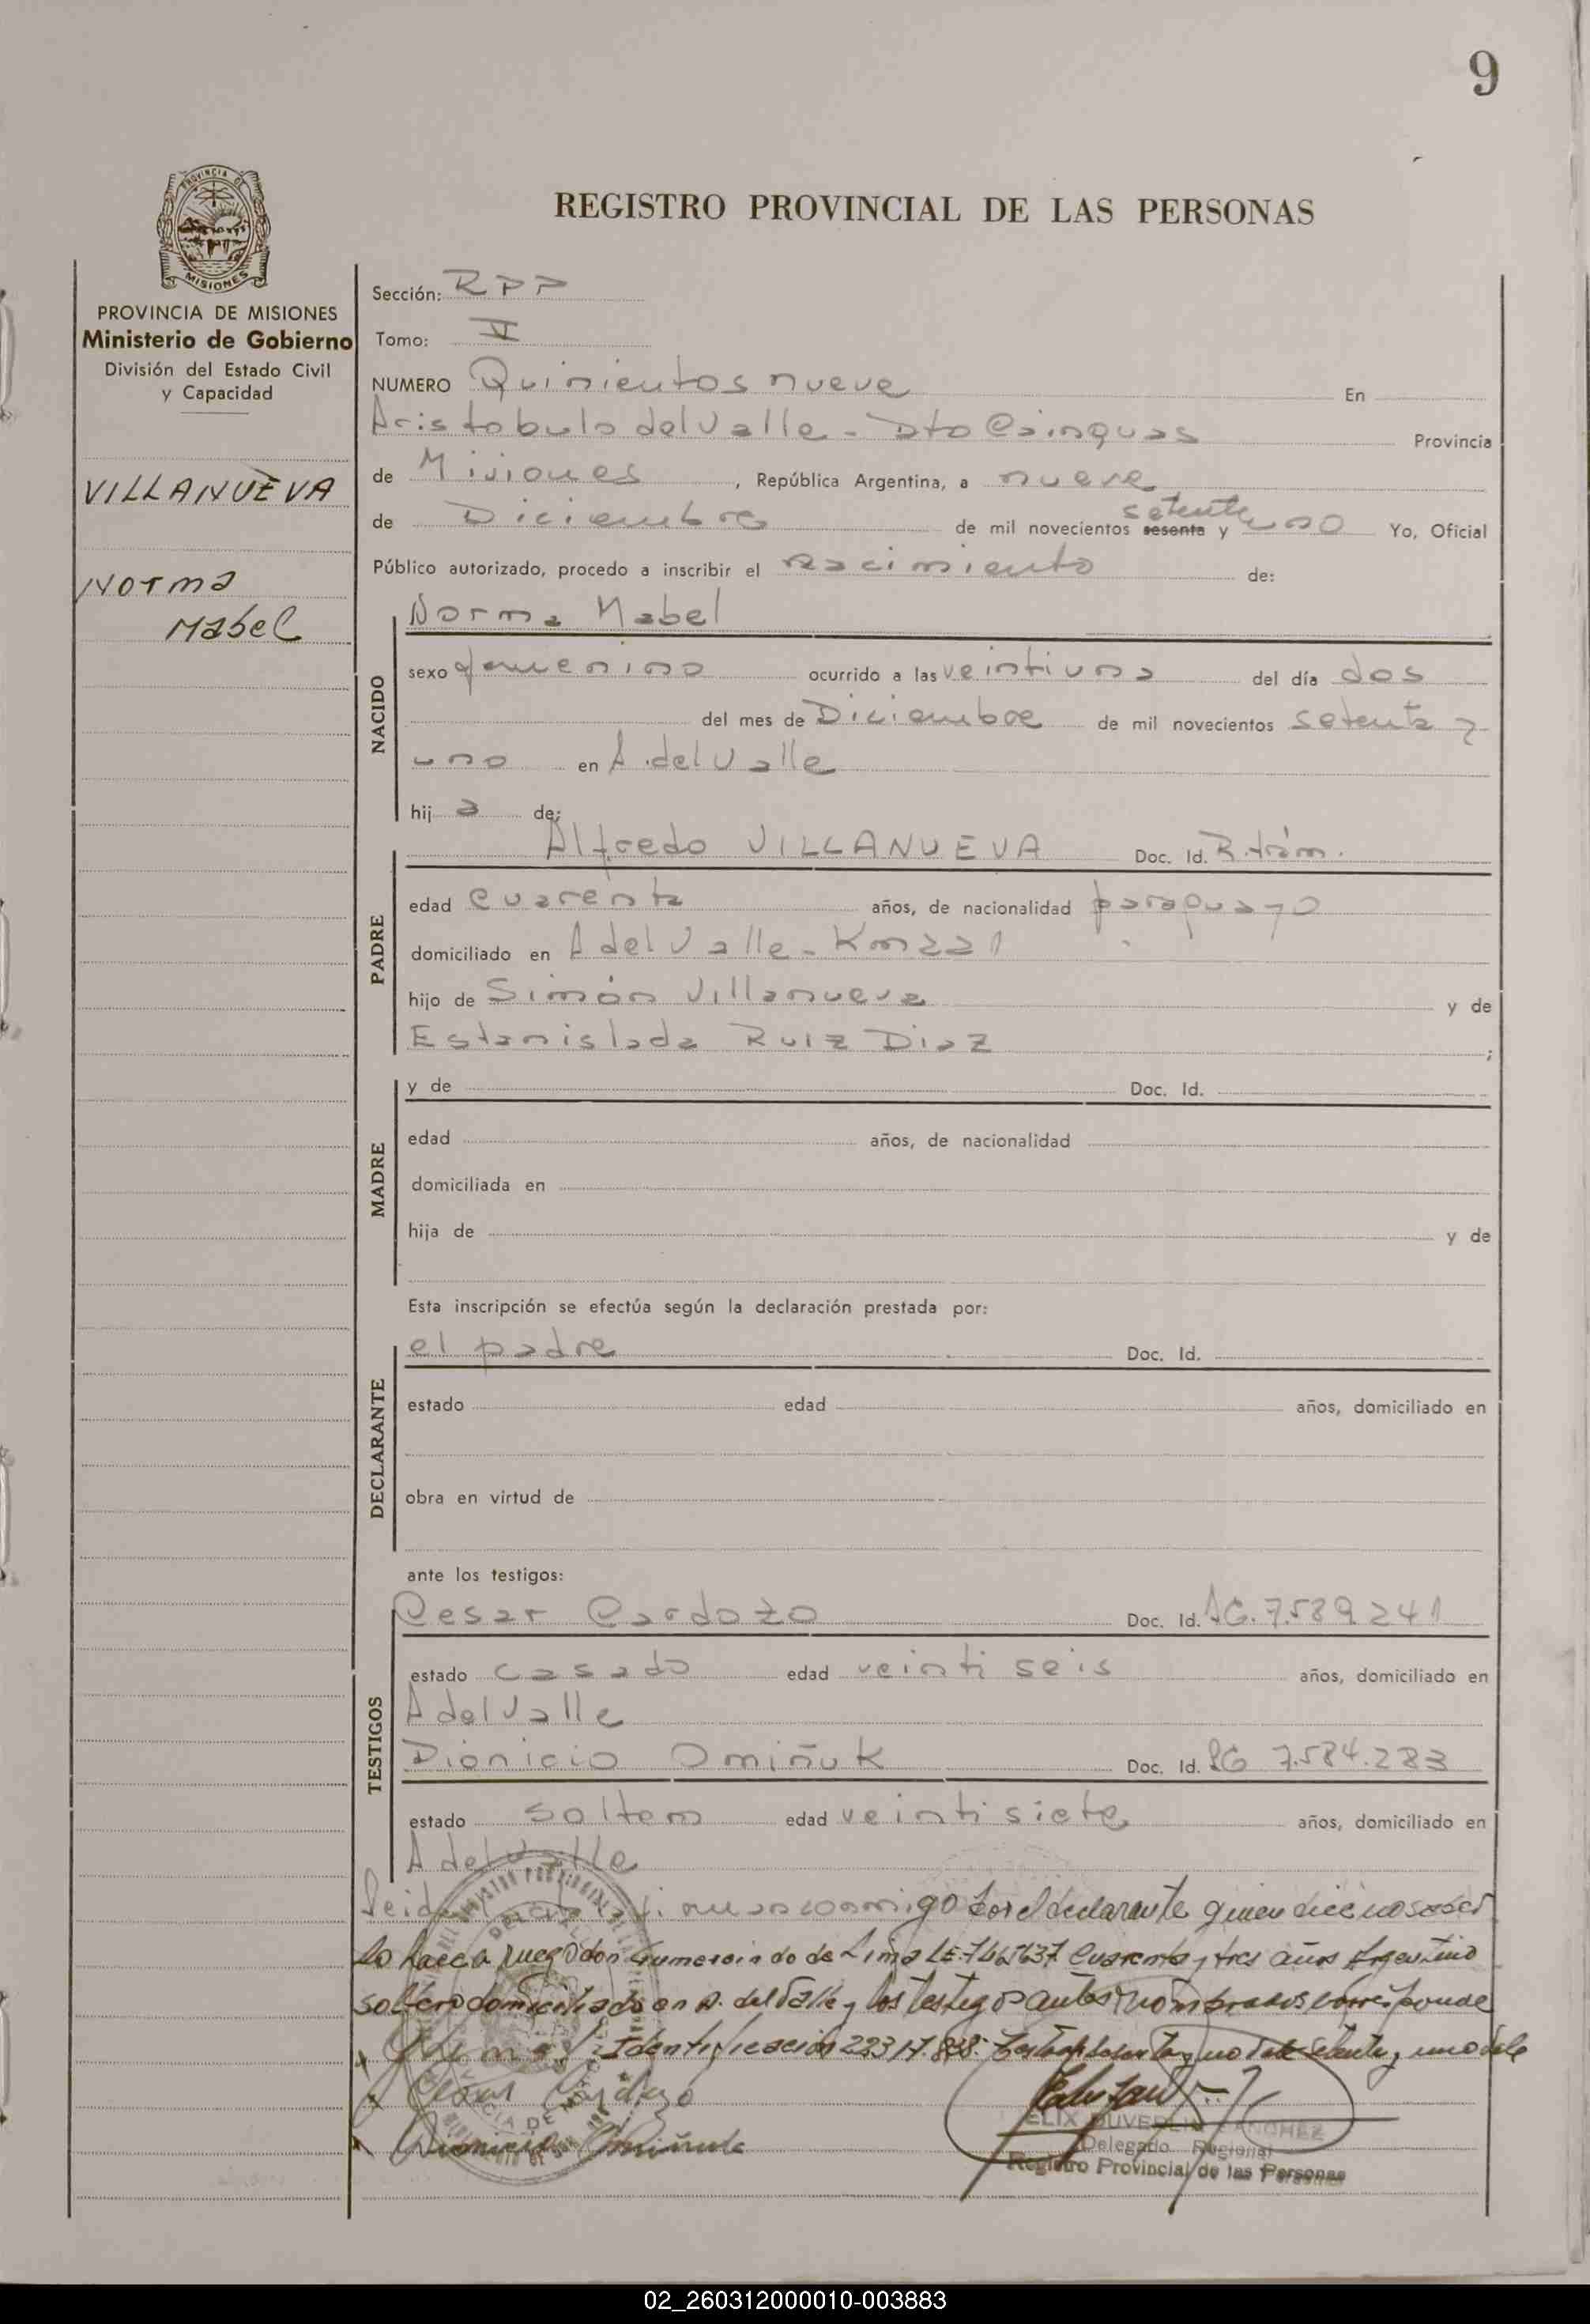 9
REGISTRO PROVINCIAL DE LAS PERSONAS
PROVINCIA DE MISIONES
Ministerio de Gobierno
División del Estado Civil
y Capacidad
VILLANUEVA
Norma
Mabel
Sección: RPP
Tomo: II
NUMERO Quinientos nueve En
Aristobulo del Valle - Dto Cainguas Provincia
de Misiones, República Argentina, a nueve
de Diciembre de mil novecientos sesenta setenta y uno Yo, Oficial
Público autorizado, procedo a inscribir el nacimiento de:
NACIDO
Norma Mabel
sexo femenino ocurrido a las veintiuna del día dos
del mes de Diciembre de mil novecientos setenta y
uno en A. del Valle
hija de:
PADRE
Alfredo VILLANUEVA Doc. Id. R. trám.
edad cuarenta años, de nacionalidad paraguayo
domiciliado en A del Valle - Km 221
hijo de Simón Villanueva y de
Estanislada Ruiz Diaz ;
MADRE
y de Doc. Id.
edad años, de nacionalidad
domiciliada en
hija de y de
Esta inscripción se efectúa según la declaración prestada por:
DECLARANTE
el padre Doc. Id.
estado edad años, domiciliado en
obra en virtud de
ante los testigos:
TESTIGOS
Cesar Cardozo Doc. Id. 7.589.241
estado casado edad veinti seis años, domiciliado en
A del Valle
Dionicio Omiñuk Doc. Id. 7.584.283
estado soltero edad veinti siete años, domiciliado en
A del Valle
conmigo por el declarante quien dice no saber
lo hace a ruego don Gumercindo de Lima LE. cuarenta y tres años Argentino
soltero domiciliado en A. del Valle y los testigos antes nombrados corresponde
Identificación
Cesar Cardozo
Dionicio Omiñuk
DUVER SANCHEZ
Delegado Regional
Registro Provincial de las Personas
02_260312000010-003883